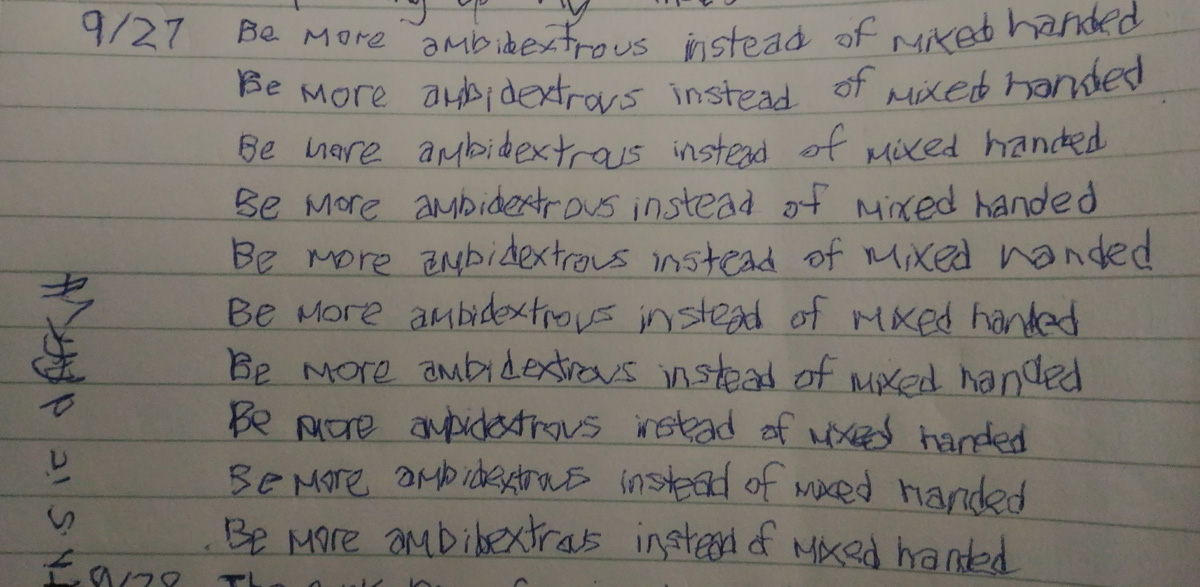 9/27 Be more ambidextrous instead of mixed handed
Be more ambidextrous instead of mixed handed
Be more ambidextrous instead of mixed handed
Be more ambidextrous instead of mixed handed
Be more ambidextrous instead of mixed handed
Be more ambidextrous instead of mixed handed
Be more ambidextrous instead of mixed handed
Be more ambidextrous instead of mixed handed
Be more ambidextrous instead of mixed handed
Be more ambidextrous instead of mixed handed
9/28